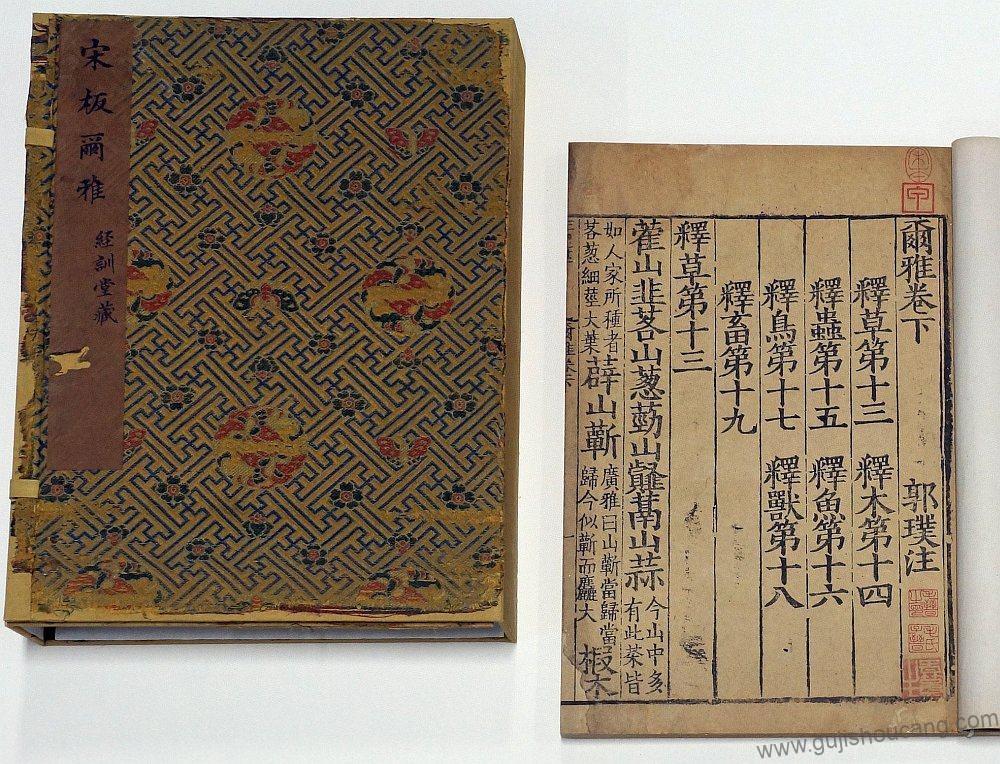 宋板爾雅
経訓堂藏
宋本
爾雅卷下 郭璞注
釋草第十三 釋木第十四
釋蟲第十五 釋魚第十六
釋鳥第十七 釋獸第十八
釋畜第十九
釋草第十三
藿山韭茖山葱葝山䪥蒚山蒜 今山中多有此菜皆
如人家所種者茖葱細莖大葉 薜山蘄 廣雅曰山蘄當歸當歸今似蘄而麤大 椵木
www.gujishoucang.com